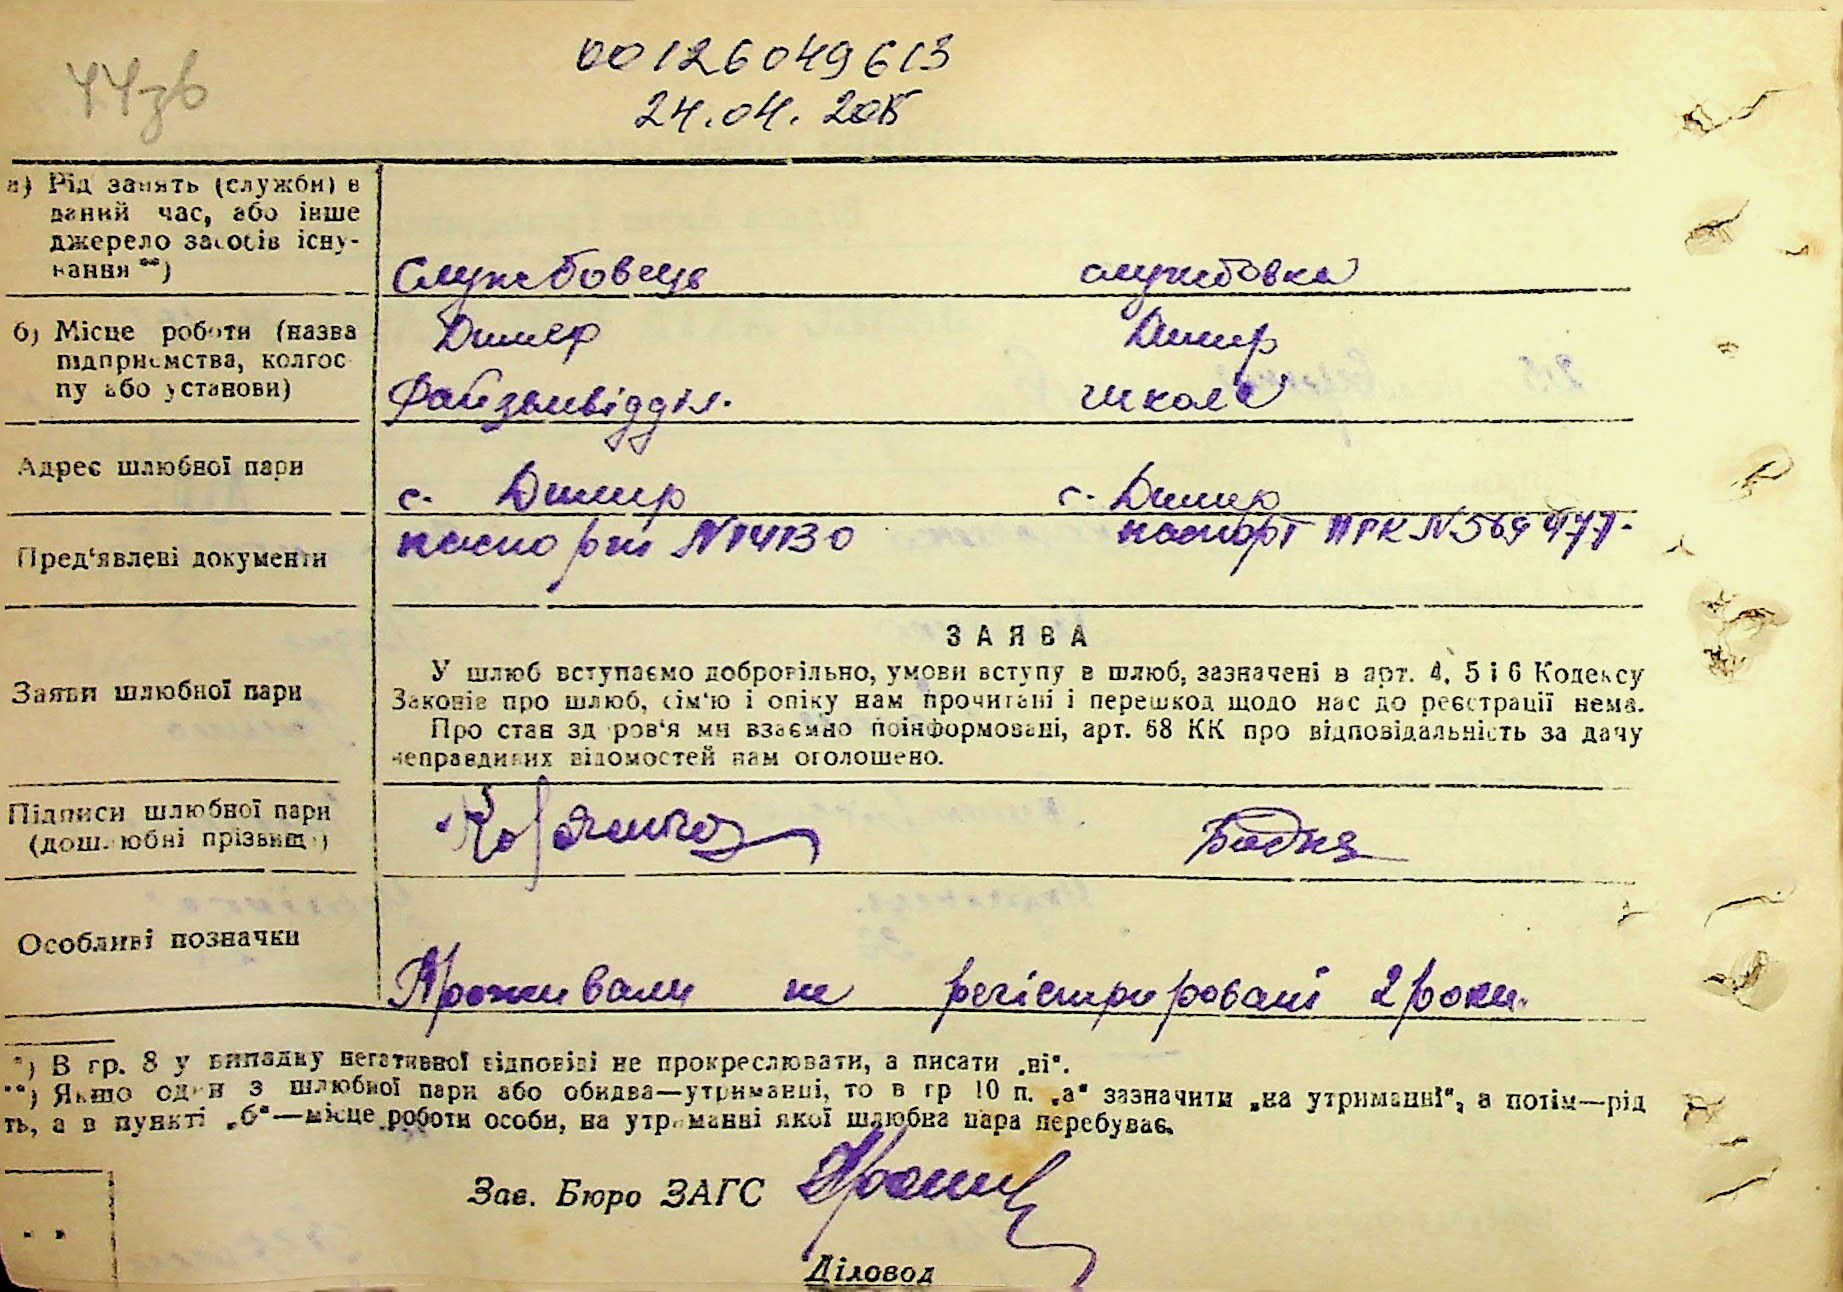 44зв
00126049613
24.04.2015
а) Рід занять (служби) в
даний час, або інше
джерело засобів існу-
вання **)
Службовець службовка
б) Місце роботи (назва
підприємства, колгос-
пу або установи)
Димер Димер
Райземвідділ. школа
Адрес шлюбної пари
с. Димир с. Димер
Пред'явлені документи
паспорт №14130 паспорт ПРК №569477-
Заяви шлюбної пари
ЗАЯВА
У шлюб вступаємо добровільно, умови вступу в шлюб, зазначені в арт. 4, 5 і 6 Кодексу
Законів про шлюб, сім'ю і опіку нам прочитані і перешкод щодо нас до реєстрації нема.
Про стан здоров'я ми взаємно поінформовані, арт. 68 КК про відповідальність за дачу
неправдивих відомостей нам оголошено.
Підписи шлюбної пари
(дошлюбні прізвища)
Особливі позначки
Проживали не регістрировані 2 роки.
*) В гр. 8 у випадку негативної відповіді не прокреслювати, а писати „ні“.
**) Якщо один з шлюбної пари або обидва—утриманці, то в гр 10 п. „а“ зазначити „на утриманні“, а потім—рід
ть, а в пункті „б“—місце роботи особи, на утриманні якої шлюбна пара перебуває.
Зав. Бюро ЗАГС
Діловод